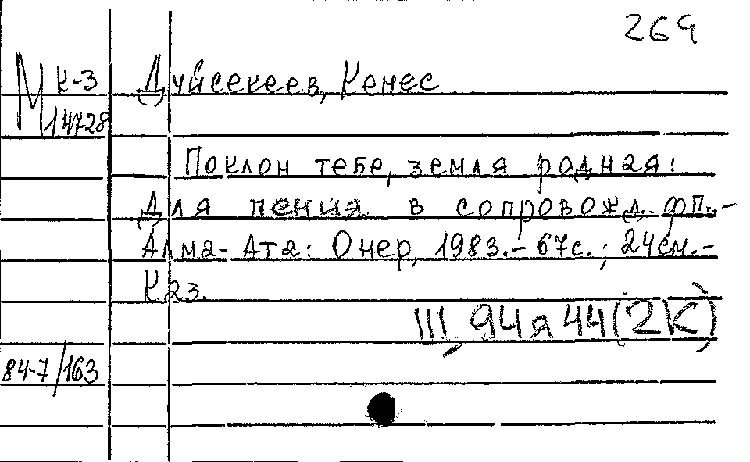 269
М К-3
14728
Дуйсекеев, Кенес
Поклон тебе, земля родная:
Для пения в сопровожд. фп.-
Алма-Ата: Онер, 1983.- 67с.; 24см.-
Каз.
III, 94я44(2К)
84-7/163